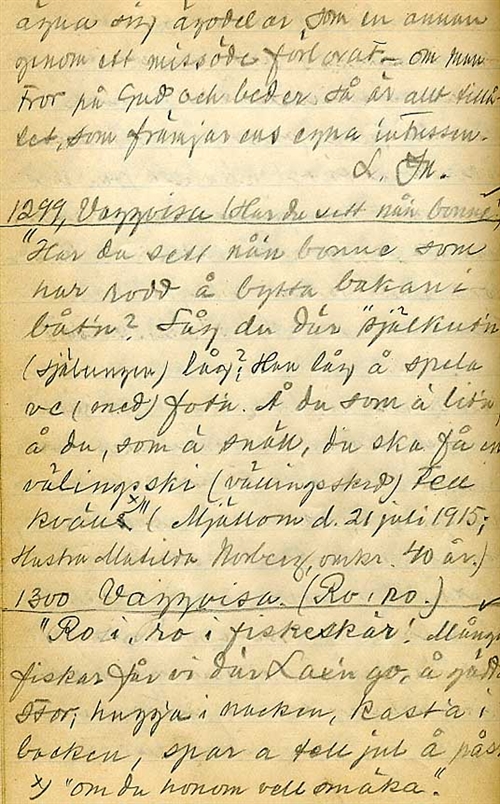 ägna sig ägodelar, som en annan
genom ett missöde förlorat – om man
tror på Gud och beder så är allt tillå-
tet, som främjar ens egna intressen.
L. Jn.
1299, Vaggvisa (Har du sett nån bonne)
"Har du sett nån bonne som
har rodd å bytta bakani
båtn? Såg du där "själkutn
(själungen) låg? Han låg å spela
ve (med) fotn. Å du som ä litn,
å du, som ä snäll, du ska få en
välingski (vällingsked) tell
kväll x)" (Mjällom d. 21 juli 1915;
Hustru Matilda Norberg, omkr. 40 år.)
1300 Vaggvisa. (Ro i ro.)
"Ro i, ro i fiskeskär! Många
fiskar får vi där Laxn go, å gädda
stor, hugga i nacken, kasta i
backen, spar a tell jul å påsk
x) "om du honom vell smaka".